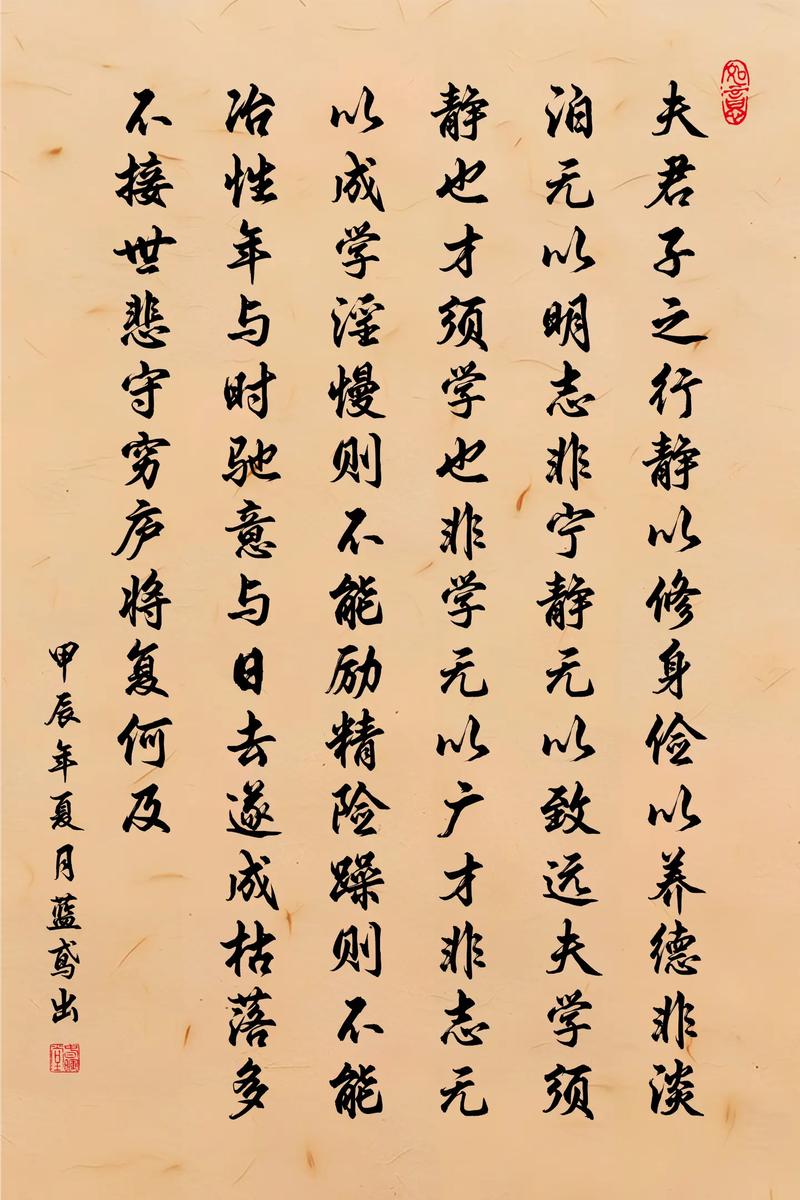 如意
夫君子之行静以修身俭以养德非淡
泊无以明志非宁静无以致远夫学须
静也才须学也非学无以广才非志无
以成学淫慢则不能励精险躁则不能
冶性年与时驰意与日去遂成枯落多
不接世悲守穷庐将复何及
甲辰年夏月蓝鸢出